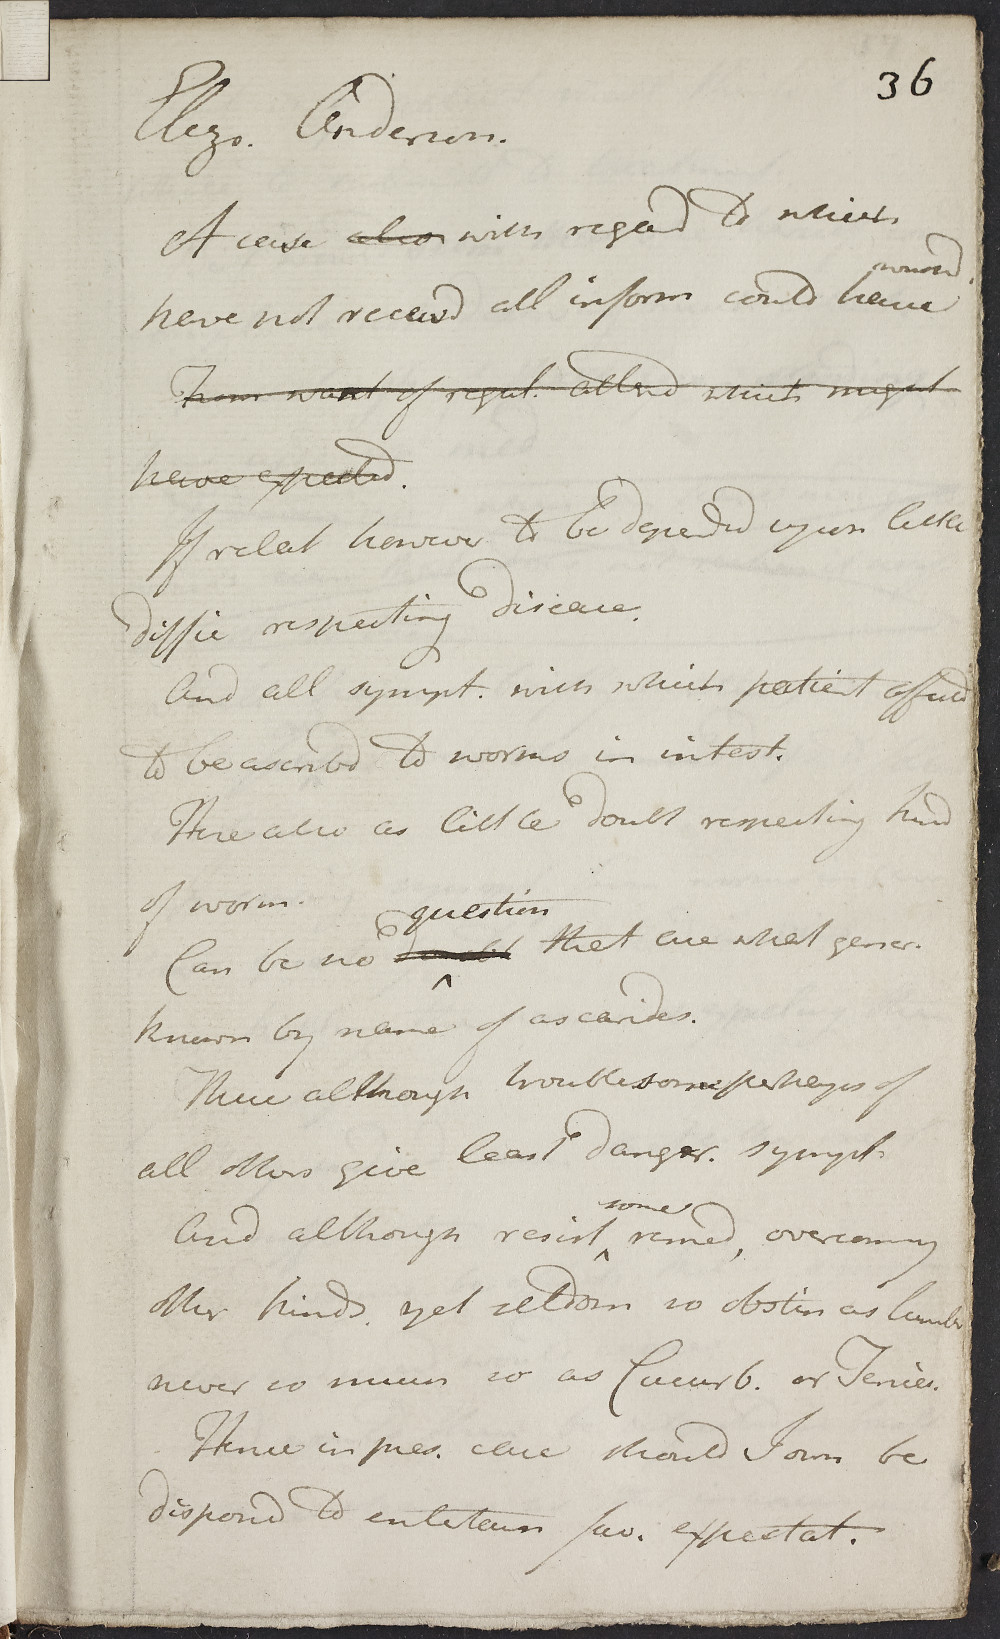 36
Eliza. Anderson.
A case also with regard to which
have not received all inform could have wished.
From want of regul. attend which might
have expected.
If relat however to be depended upon little
diffic respecting disease.
And all sympt. with which patient affected
to be ascribd to worms in intest.
Here also as little doubt respecting kind
of worm.
Can be no doubt question that are what gener.
known by name of ascarides.
These although troublesome perhaps of
all others give least danger. sympt.
And although resist some remed, overcoming
other kinds, yet seldom so obstin as Lumbr
never so much so as Cucurb. or Teniae.
Hence in pres. case should I own be
disposd to entertain fav. expectat.